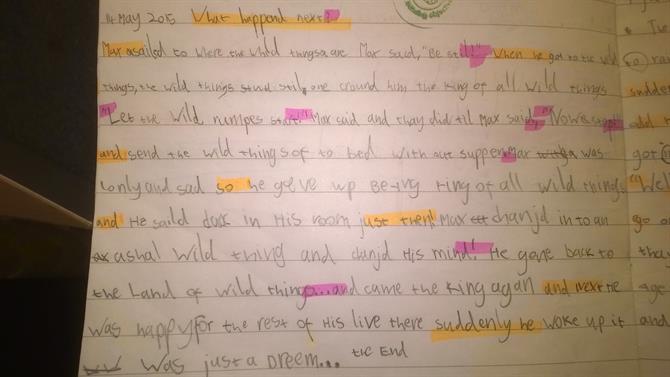 14 May 2015 What happend next?
Max asailed to where the whild things are Max said, "Be still!" When he got to the wild
things, the wild things stud still, one cround him the King of all wild things
"Let the wild rumpes start!" Max said and thay did til Max said, "Now stop!"
and send the wild things of to bed with out supper. Max was
lonly and sad so he geive up Being King of all wild things
and He saild back in His room just then! Max chanjd in to an
ashal wild thing and chanjd His mind! He gone back to
the Land of wild things...and came the King agan and next He
was happy for the rest of His live there suddenly he woke up it
was just a Dreem... the End
sudden
got
Well
go
age
and